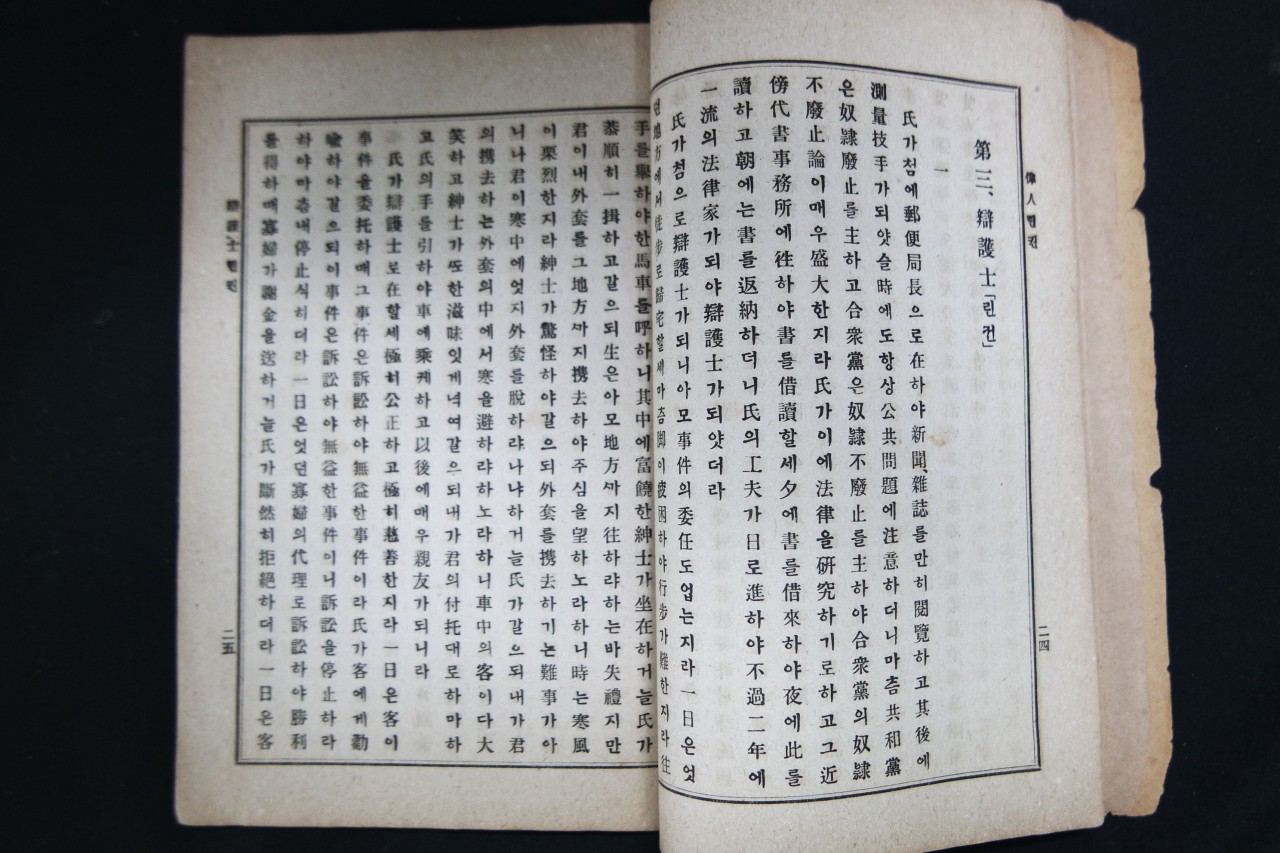 偉人린컨
第三、辯護士「린컨」
一
氏가첨에郵便局長으로在하야新聞、雜誌를만히閱覽하고其後에
測量技手가되얏슬時에도항상公共問題에注意하더니마츰共和黨
은奴隷廢止를主하고合衆黨은奴隷不廢止를主하야合衆黨의奴隷
不廢止論이매우盛大한지라氏가이에法律을硏究하기로하고그近
傍代書事務所에往하야書를借讀할세夕에書를借來하야夜에此를
讀하고朝에는書를返納하더니氏의工夫가日로進하야不過二年에
一流의法律家가되야辯護士가되얏더라
氏가첨으로辯護士가되니아모事件의委任도업는지라一日은엇
던地方에서徒步로歸宅할세마츰脚이疲困하야行步가難한지라往
二四
手를擧하야한馬車를呼하니其中에富饒한紳士가坐在하거늘氏가
恭順히一揖하고갈으되生은아모地方ᄭᅡ지往하랴하는바失禮지만
君이내外套를그地方ᄭᅡ지携去하야주심을望하노라하니時는寒風
이栗烈한지라紳士가驚怪하야갈으되外套를携去하기는難事가아
니나君이寒中에엇지外套를脫하랴나냐하거늘氏가갈으되내가君
의携去하는外套의中에서寒을避하랴하노라하니車中의客이다大
笑하고紳士가ᄯᅩ한滋味잇게녁여갈으되내가君의付托대로하마하
고氏의手를引하야車에乘케하고以後에매우親友가되니라
氏가辯護士로在할세極히公正하고極히慈善한지라一日은客이
事件을委托하매그事件은訴訟하야無益한事件이라氏가客에게勸
喩하야갈으되이事件은訴訟하야無益한事件이니訴訟을停止하라
하야마츰내停止식히더라一日은엇던寡婦의代理로訴訟하야勝利
를得하매寡婦가謝金을送하거늘氏가斷然히拒絶하더라一日은客
辯護士린컨
二五